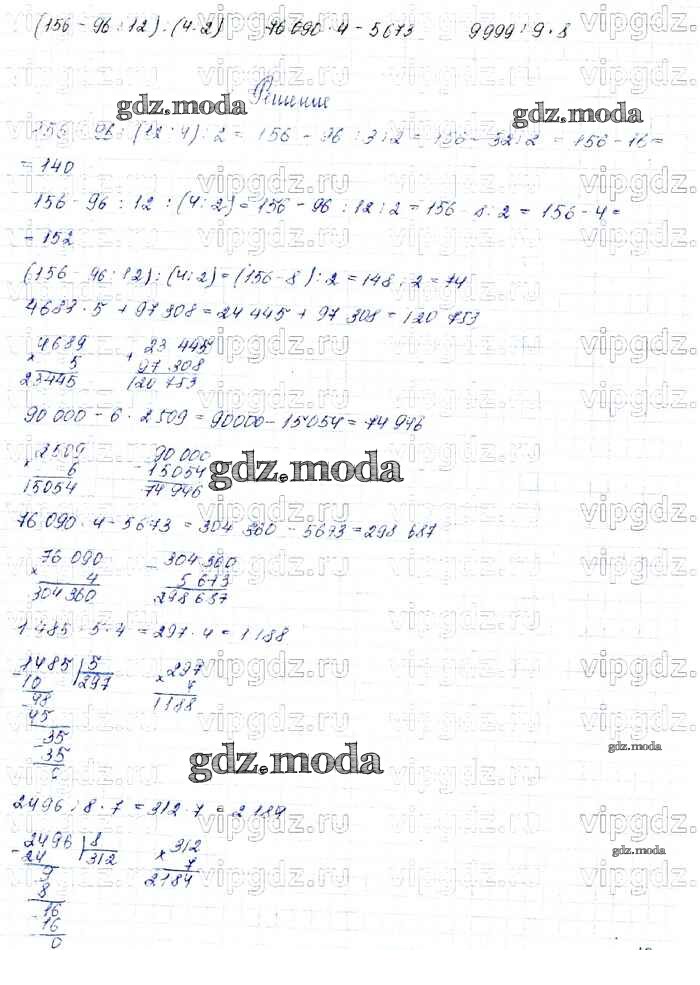 (156 - 96 : 12) : (4 : 2) 76 090 · 4 - 5673 9999 : 9 · 8
Решение
156 - 96 : (12 : 4) : 2 = 156 - 96 : 3 : 2 = 156 - 32 : 2 = 156 - 16 =
= 140
156 - 96 : 12 : (4 : 2) = 156 - 96 : 12 : 2 = 156 - 8 : 2 = 156 - 4 =
= 152
(156 - 96 : 12) : (4 : 2) = (156 - 8) : 2 = 148 : 2 = 74
4689 · 5 + 97 308 = 24 445 + 97 308 = 120 753
4689 23 445
× 5 + 97 308
23445 120 753
90 000 - 6 · 2 509 = 90000 - 15054 = 74 946
2509 90 000
× 6 - 15054
15054 74 946
76 090 · 4 - 5673 = 304 360 - 5673 = 298 687
76 090 - 304 360
× 4 5 673
304 360 298 687
1 485 : 5 · 4 = 297 · 4 = 1188
- 1485 | 5 × 297
10 297 4
- 48 1188
45
- 35
35
0
2496 : 8 · 7 = 312 · 7 = 2184
- 2496 | 8 × 312
24 312 7
9 2184
8
16
- 16
0
gdz.moda
gdz.moda
gdz.moda
gdz.moda
gdz.moda
gdz.moda
vipgdz.ru